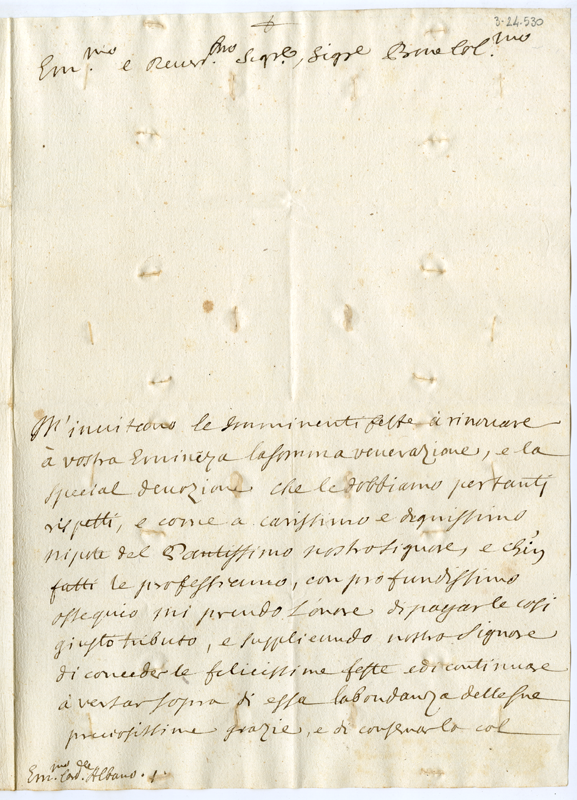 3-24.530
Em.mo e Reverd.mo Sigre, Sigre Prone Col.mo
M'invitono le imminenti feste à rinovare
à vostra Emineza la somma venerazione, e la
special devozione che le dobbiamo per tanti
rispetti, e come a carissimo e degnissimo
nipote del Santissimo nostro Signore, e ch'in
fatti le professiamo, con profundissimo
ossequio mi prendo l'onore di pagarle cosi
giusto tributo, e supplicando nostro Signore
di concederle felicissime feste e di continuare
à versar sopra di essa labondanza delle sue
preciosissime grazie, e di conservarla col
Em.mo Card.le Albano.